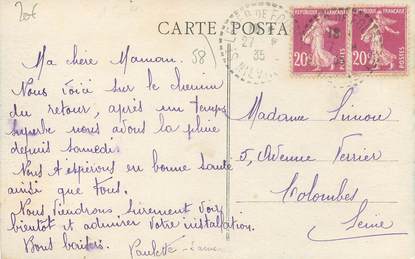 20€
CARTE POSTA
58
27
35
REPUBLIQUE FRANCAISE
20c
POSTES
20c
POSTES
Ma chère Maman.
Nous voici sur le chemin
du retour, après un temps
superbe nous avons la pluie
depuis samedi.
Nous t'espérons en bonne santé
ainsi que tous.
Nous viendrons sûrement voir
bientôt et admirer votre installation.
Bons baisers.
Paulette
Madame Simon
5, Avenue Verrier
Colombes
Seine